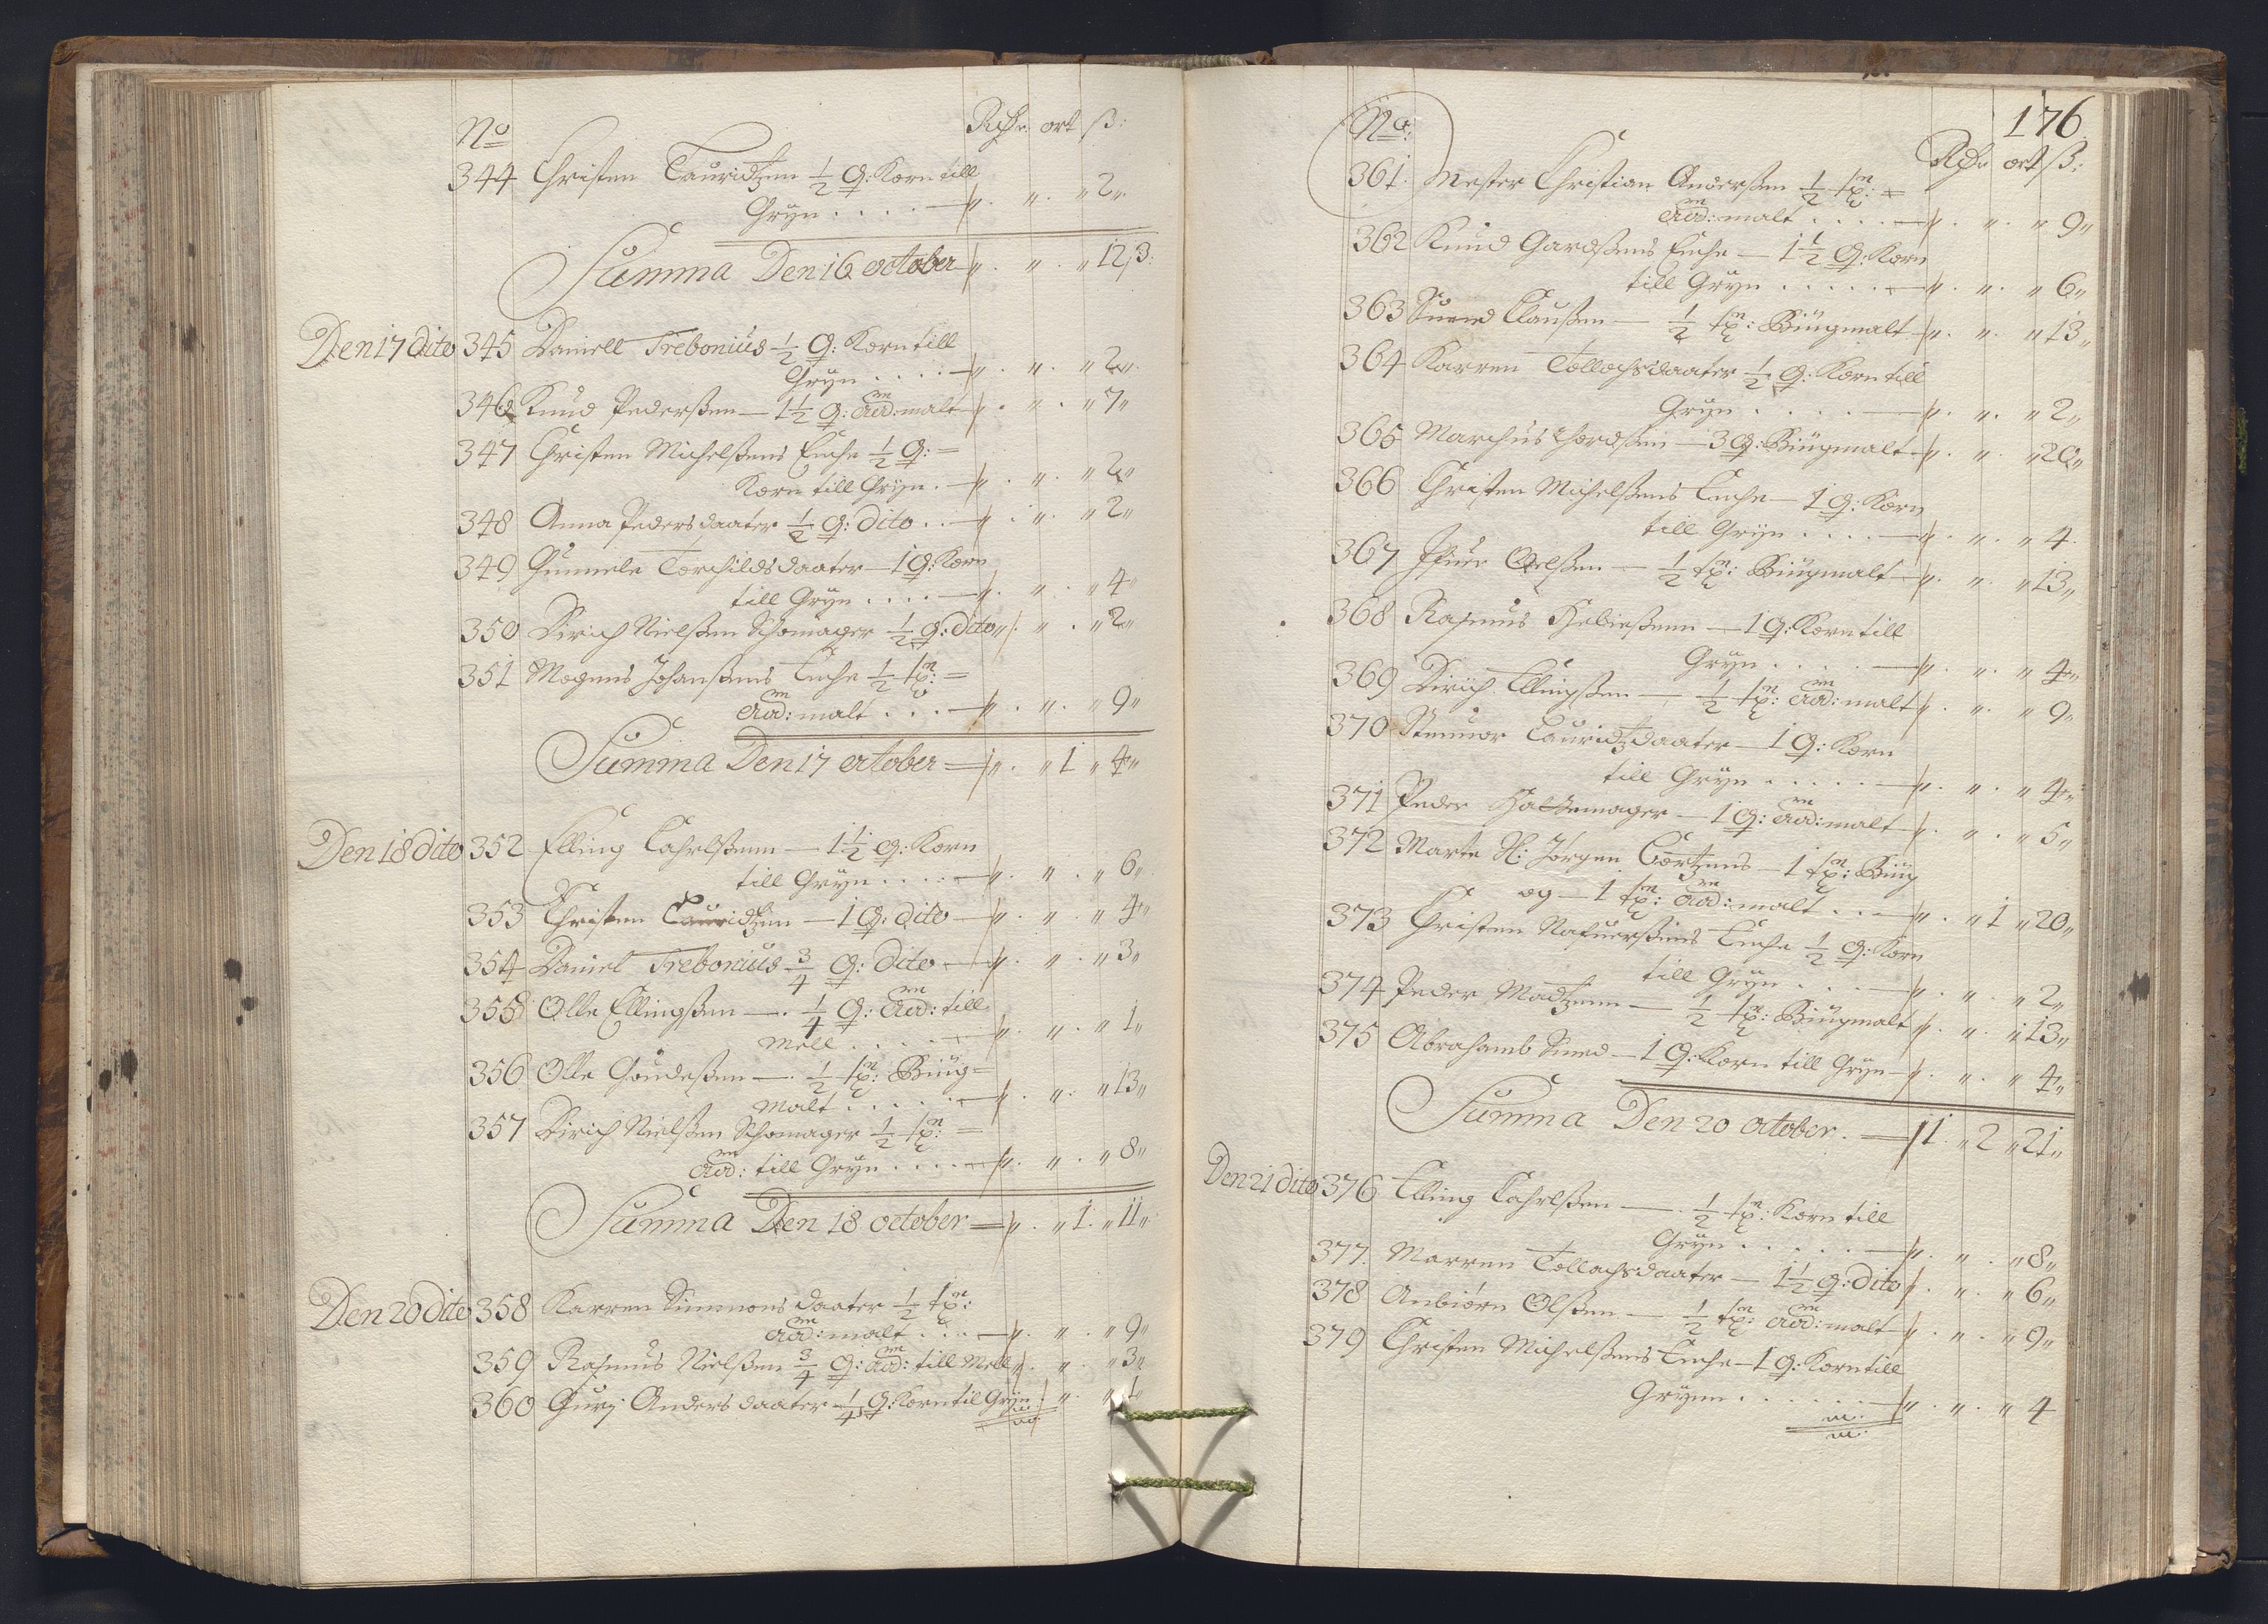 No Rixdr ort ß:
344 Christen Lauridtzen ½ Q: Korn till
Gryn . . . . — „ . „ . „ 2 „
Summa Den 16 october — „ . „ . „ 12 ß:
Den 17 dito 345 Daniell Trebonius ½ Q: Korn till
Gryn . . . . — „ . „ . „ 2 „
346 Knud Pederßen — 1½ Q: And: malt — „ . „ . „ 7 „
347 Christen Michelßens Enche ½ Q: =
Korn till Gryn . — „ . „ . „ 2 „
348 Anna Pedersdaater ½ Q: dito . . — „ . „ . „ 2 „
349 Gunnele Torchildsdaater — 1 Q: Korn
till Gryn . . . . — „ . „ . „ 4 „
350 Dirich Nielßen Schomager ½ Q: dito „ . „ . „ 2 „
351 Mogens Johanßens Enche ½ tp: =
And: malt . . . — „ . „ . „ 9 „
Summa Den 17 october = „ . „ 1 „ 4 „
Den 18 dito 352 Elling Carlßenn — 1½ Q: Korn
till Gryn . . . . — „ . „ . „ 6 „
353 Christen Lauridtzen — 1 Q: dito — „ . „ . „ 4 „
354 Daniel Trebonius ¾ Q: dito — „ . „ . „ 3 „
355 Olle Ellingßen — . ¼ Q: And: till
Mell . . . . — „ . „ . „ 1 „
356 Olle — . ½ tp: Biug =
Malt . . . . . — „ . „ . „ 13 „
357 Dirich Nielßen Schomager ½ tp: =
And: till Gryn . . . . — „ . „ . „ 8 „
Summa Den 18 october = „ . „ 1 . „ 11 „
Den 20 dito 358 Karren Simmonsdaater ½ tp:
And: malt . . . — „ . „ . „ 9 „
359 Rasmus Nielßen ¾ Q: And: till Mell „ . „ . „ 3 „
360 Gurj Andersdaater ¼ Q: Korn til Gryn „ . „ . „ 1 „
176
No: Rdr ort ß:
361. Mester Christian Anderßen ½ tp: =
And: malt . . . . — „ . „ . „ 9 „
362 Knud Gardßens Enche — 1½ Q: Korn
till Gryn . . . . . — „ . „ . „ 6 „
363 Suend Claußen — ½ tp: Biugmalt — „ . „ . „ 13 „
364 Karren Tollachsdaater ½ Q: Korn till
Gryn . . . . — „ . „ . „ 2 „
365 Marchus — 3 Q: Biugmalt — „ . „ . „ 20 „
366 Christen Michelßens Enche — 1 Q: Korn
till Gryn . . . . — „ . „ . „ 4 .
367 Ifuer Oelßen — ½ tp: Biugmalt — „ . „ . „ 13 „
368 Rasmus — 1 Q: Korn till
Gryn . . . . — „ . „ . „ 4 „
369 Dirich Ellingßen — ½ tp: And: malt „ . „ . „ 9 „
370 Lauridtzdaater — 1 Q: Korn
till Gryn . . . . . — „ . „ . „ 4 „
371 Peder Hattemager — 1 Q: And: malt — „ . „ . „ 5 „
372 Marte Sl: Jørgen — 1 tp: Biug
og — 1 tp: And: malt . . — „ . „ 1 „ 20 „
373 Christen Enche ½ Q: Korn
till Gryn . . . — „ . „ . „ 2 „
374 Peder Madtzenn — ½ tp: Biugmalt „ . „ . „ 13 „
375 Abrahamb Smed — 1 Q: Korn till Gryn — „ . „ . „ 4 „
Summa Den 20 october . = 1 . „ 2 „ 21 „
Den 21 dito 376 Elling Carlßen — . ½ tp: Korn till
Gryn . . . . . — „ . „ . „ 8 „
377. Marren Tollachsdaater — 1½ Q: dito „ . „ . „ 6 „
378 Anbiørn Olßen — ½ tp: And: malt — „ . „ . „ 9 „
379 Christen Michelßens Enche — 1 Q: Korn till
Grynn . . . . . . — „ . „ . „ 4